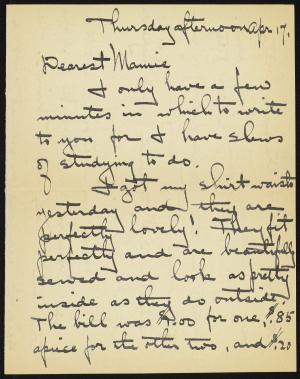 Thursday afternoon Apr. 17.
Dearest Mamie
I only have a few
minutes in which to write
to you for I have slews
of studying to do.
I got my shirt waists
yesterday and they are
perfectly lovely! They fit
perfectly and are beautifully
sewed and look as pretty
inside as they do outside.
The bill was for one, .85
apiece for the other two, and .20